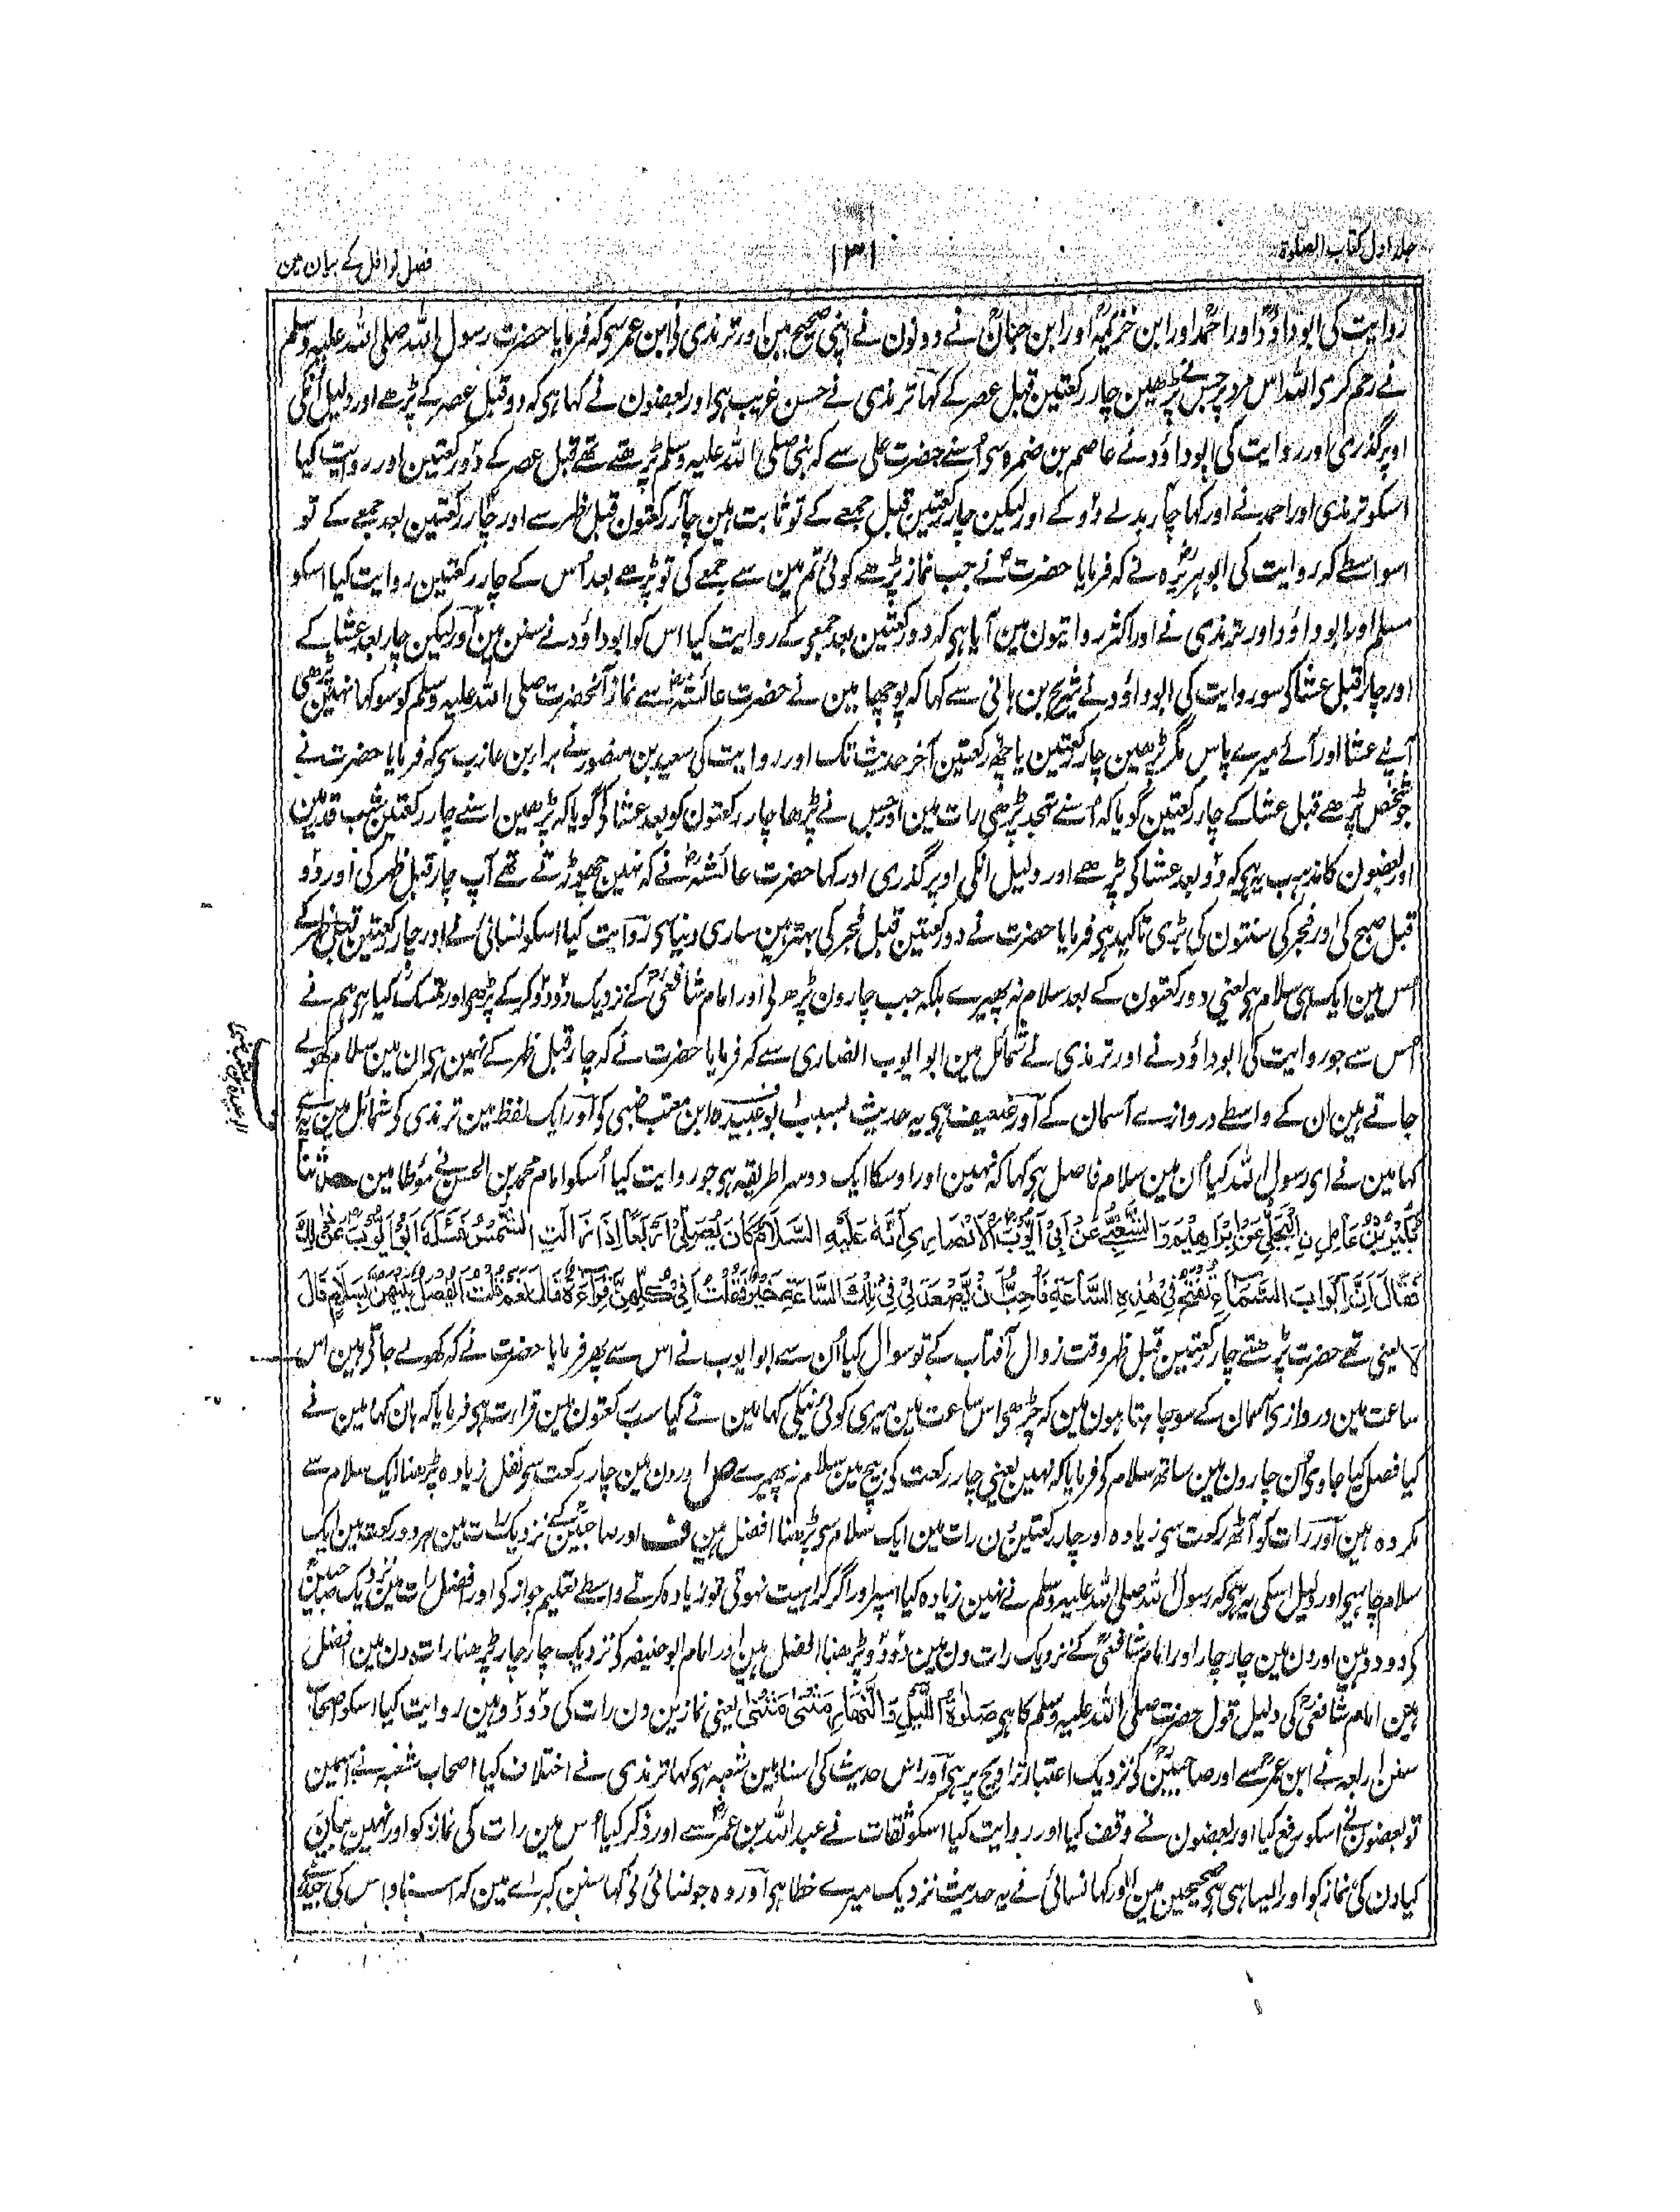 جلد اول کتاب الصلوۃ
۱۳۱
فصل نوافل کے بیان مین
روایت کی ابوداؤد اور احمد اور ابن خزیمہ اور ابن حبان نے دونون نے اپنی صحیح مین اور ترمذی نے ابن عمر سی کہ فرمایا حضرت رسول اللہ صلی اللہ علیہ وسلم
نے رحم کری اللہ اس مرد پر جس نے پڑھین چار رکعتین قبل عصر کے کہا ترمذی نے حسن غریب ہی اور بعضون نے کہا ہی کہ دو قبل عصر کے پڑھے اور دلیل انکی
اوپر گذری اور روایت کی ابوداؤد نے عاصم بن ضمرہ سی اُسنے حضرت علی سے کہ نبی صلی اللہ علیہ وسلم پڑھتے تھے قبل عصر کے دو رکعتین اور روایت کیا
اسکو ترمذی اور احمد نے اور کہا چار بدلے دو کے اور لیکین چار رکعتین قبل جمعے کے تو ثابت ہین چار رکعتون قبل ظہر سے اور چار رکعتین بعد جمعے کے تو
اسواسطے کہ روایت کی ابوہریرہ نے کہ فرمایا حضرت نے جب نماز پڑھے کوئی تم مین سے جمعے کی تو پڑھے بعد اُس کے چار رکعتین روایت کیا اسکو
مسلم اور ابوداؤد اور ترمذی نے اور اکثر روایتون مین آیا ہی کہ دو رکعتین بعد جمعی کے روایت کیا اس کو ابوداؤد نے سنن مین اور لیکین چار بعد عشا کے
اور چار قبل عشا کی سو روایت کی ابوداؤد نے شریح بن ہانی سے کہا کہ پوچھا مین نے حضرت عائشہ سے نماز آنحضرت صلی اللہ علیہ وسلم کو سو کہا نہین پڑھی
آپنے عشا اور آئے میرے پاس مگر پڑھین چار رکعتین یا چھ رکعتین آخر حدیث تک اور روایت کی سعید بن منصور نے براء بن عازب سی کہ فرمایا حضرت نے
جو شخص پڑھے قبل عشا کے چار رکعتین گویا کہ اُسنے تہجد پڑھی رات مین اور جس نے پڑھا چار رکعتون کو بعد عشا کی گویا کہ پڑھین اسنے چار رکعتین شب قدر مین
اور بعضون کا مذہب یہ ہی کہ دو بعد عشا کی پڑھے اور دلیل انکی اوپر گذری اور کہا حضرت عائشہ نے کہ نہین چھوڑتے تھے آپ چار قبل ظہر کی اور دو
قبل صبح کی اور فجر کی سنتون کی بڑی تاکید ہی فرمایا حضرت نے دو رکعتین قبل فجر کی بہتر ہین ساری دنیا سی روایت کیا اسکو نسائی نے اور چار رکعتین قبل ظہر کے
اُس مین ایک ہی سلام ہی یعنی دو رکعتون کے بعد سلام نہ پھیرے بلکہ جب چارون پڑھ لی اور امام شافعی کے نزدیک دو دو کر کے پڑھی اور تمسک کیا ہی ہم نے
اُس سے جو روایت کی ابوداؤد نے اور ترمذی نے شمائل مین ابو ایوب انصاری سے کہ فرمایا حضرت نے کہ چار قبل ظہر کے نہین ہی ان مین سلام کھولے
جاتے ہین ان کے واسطے دروازے آسمان کے اور ضعیف ہی یہ حدیث بسبب ابو عبیدہ ابن معتب ضبی کی اور ایک لفظ مین ترمذی کو شمائل مین ہے
کہا مین نے ای رسول اللہ کیا اُن مین سلام فاصل ہی کہا کہ نہین اور اوسکا ایک دوسرا طریقہ ہی جو روایت کیا اُسکو امام محمد بن الحسن نے مؤطا مین حدثنا
بُكَيْرُ بْنُ عَامِرِ نِ الْبَجَلِيُّ عَنْ اِبْرَاهِيْمَ وَ الشَّعْبِيِّ عَنْ اَبِیْ اَيُّوْبَ الْاَنْصَارِيِّ اَنَّهُ عَلَيْهِ السَّلَامُ كَانَ يُصَلِّیْ اَرْبَعًا اِذَا زَالَتِ الشَّمْسُ فَسَئَلَهُ اَبُوْ اَيُّوْبَ عَنْ ذٰلِكَ
فَقَالَ اِنَّ اَبْوَابَ السَّمَآءِ تُفْتَحُ فِیْ هٰذِهِ السَّاعَةِ فَاُحِبُّ اَنْ يَّصْعَدَ لِیْ فِیْ تِلْكَ السَّاعَةِ خَيْرٌ فَقُلْتُ اَفِیْ كُلِّهِنَّ قِرَاءَةٌ قَالَ نَعَمْ قُلْتُ اَيُفْصَلُ بَيْنَهُنَّ بِسَلَامٍ قَالَ
لا یعنی تھے حضرت پڑھتے چار رکعتین قبل ظہر وقت زوال آفتاب کے تو سوال کیا اُن سے ابو ایوب نے اس سے پھر فرمایا حضرت نے کہ کھولے جاتی ہین اس
ساعت مین دروازی آسمان کے سو چاہتا ہون مین کہ چڑھے اس ساعت مین میری کوئی نیکی کہا مین نے کیا سب رکعتون مین قراءت ہی فرمایا کہ ہان کہا مین نے
کیا فصل کیا جاوی اُن چارون مین ساتھ سلام کو فرمایا کہ نہین یعنی چار رکعت کی بیچ مین سلام نہ پھیرے ص اور دن مین چار رکعت سی نفل زیادہ پڑھنا ایک سلام سے
مکروہ ہین اور رات کو آٹھ رکعت سی زیادہ اور چار رکعتین دن رات مین ایک سلام سی پڑھنا افضل ہین ف اور صاحبین کے نزدیک رات مین ہر دو رکعت مین ایک
سلام چاہیے اور دلیل اسکی یہ ہی کہ رسول اللہ صلی اللہ علیہ وسلم نے نہین زیادہ کیا اسپر اور اگر کراہیت نہوتی تو زیادہ کرتے واسطے تعلیم جواز کی اور افضل رات مین نزدیک صاحبین
کی دو دو ہین اور دن مین چار چار اور امام شافعی کے نزدیک رات دن مین دو دو پڑھنا افضل ہین اور امام ابو حنیفہ کو نزدیک چار چار پڑھنا رات دن مین افضل
ہین امام شافعی کی دلیل قول حضرت صلی اللہ علیہ وسلم کا ہی صَلٰوةُ اللَّيْلِ وَ النَّهَارِ مَثْنٰی مَثْنٰی یعنی نمازین دن رات کی دو دو ہین روایت کیا اسکو اصحاب
سنن اربعہ نے ابن عمر سے اور صاحبین کو نزدیک اعتبار تراویح پر ہی اور اس حدیث کی اسناد مین شعبہ ہی کہا ترمذی نے اختلاف کیا اصحاب شعبہ نے اسمین
تو بعضون نے اسکو رفع کیا اور بعضون نے وقف کیا اور روایت کیا اسکو ثقات نے عبد اللہ بن عمر سے اور ذکر کیا اُس مین رات کی نماز کو اور نہین بیان
کیا دن کی نماز کو اور ایسا ہی ہی صحیحین مین اور کہا نسائی نے یہ حدیث نزدیک میرے خطا ہی اور وہ جو نسائی نے کہا سنن کبری مین کہ اسناد اس کی جید